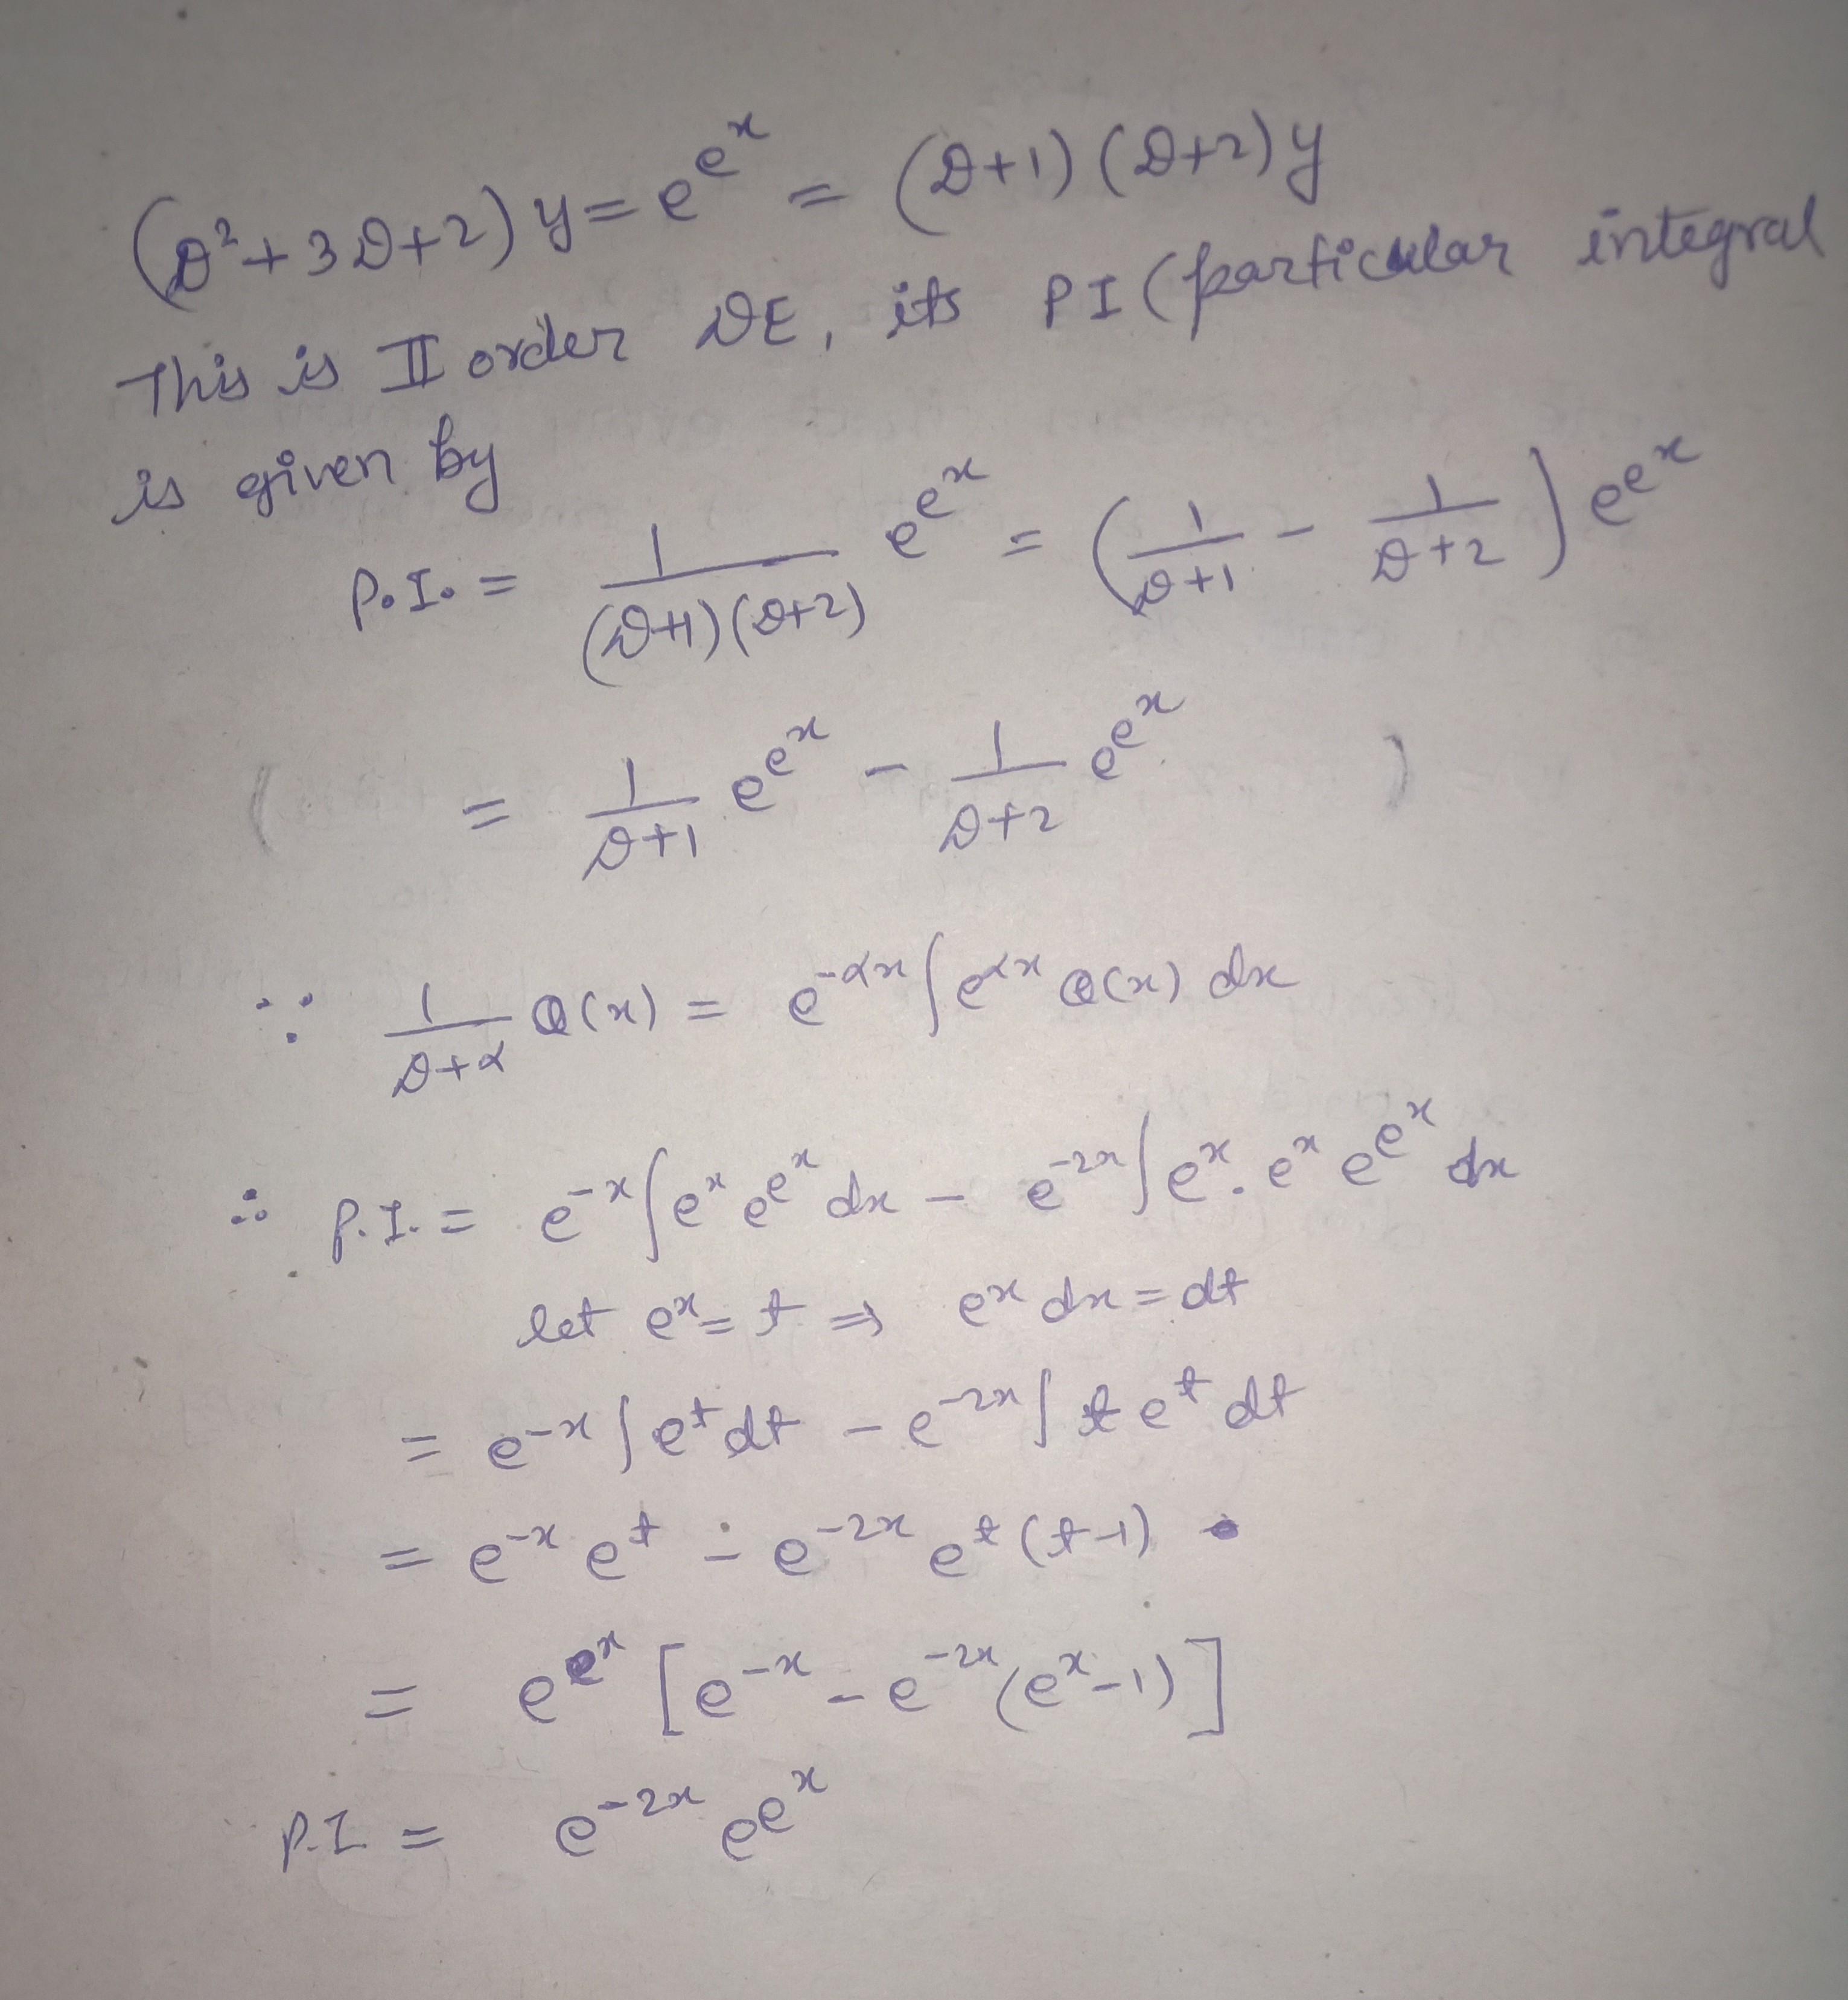 (D²+3D+2) y = e^{e^x} = (D+1) (D+2) y
This is II order DE, its PI (particular integral
is given by
P.I. = \frac{1}{(D+1)(D+2)} e^{e^x} = (\frac{1}{D+1} - \frac{1}{D+2}) e^{e^x}
= \frac{1}{D+1} e^{e^x} - \frac{1}{D+2} e^{e^x}
∵ \frac{1}{D+α} Q(x) = e^{-αx} ∫ e^{αx} Q(x) dx
∴ P.I. = e^{-x} ∫ e^x e^{e^x} dx - e^{-2x} ∫ e^x . e^x e^{e^x} dx
let e^x = t ⇒ e^x dx = dt
= e^{-x} ∫ e^t dt - e^{-2x} ∫ t e^t dt
= e^{-x} e^t - e^{-2x} e^t (t-1)
= e^{e^x} [e^{-x} - e^{-2x} (e^x - 1)]
P.I = e^{-2x} e^{e^x}